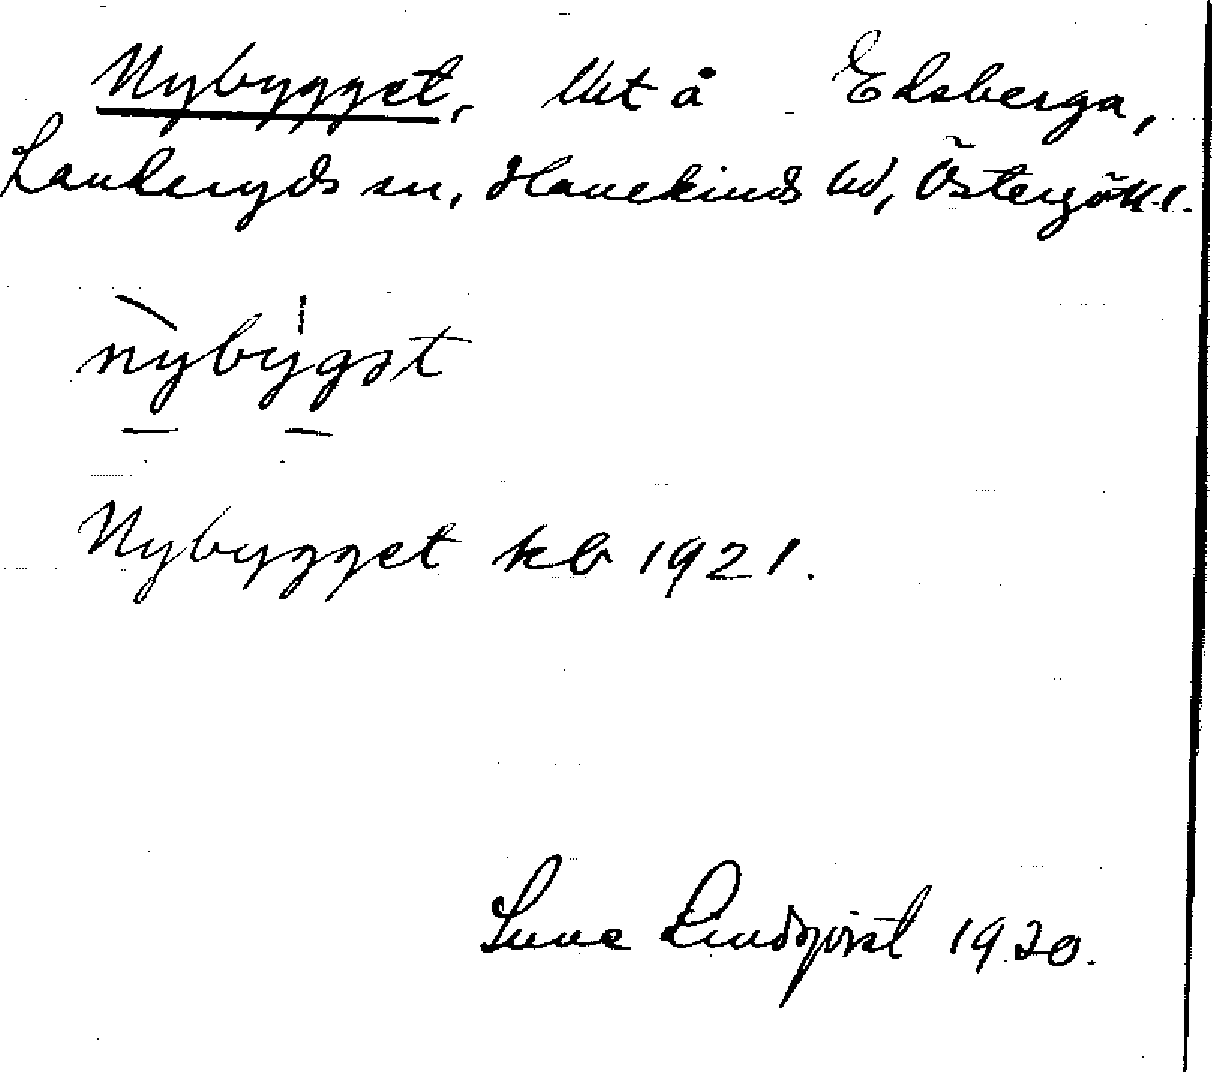 Nybygget, lht å Edsberga,
Landeryds sn, Hanekinds hd, Östergötl.
nỳbýgət
Nybygget kb 1921.
Sune Lindqvist 1920.